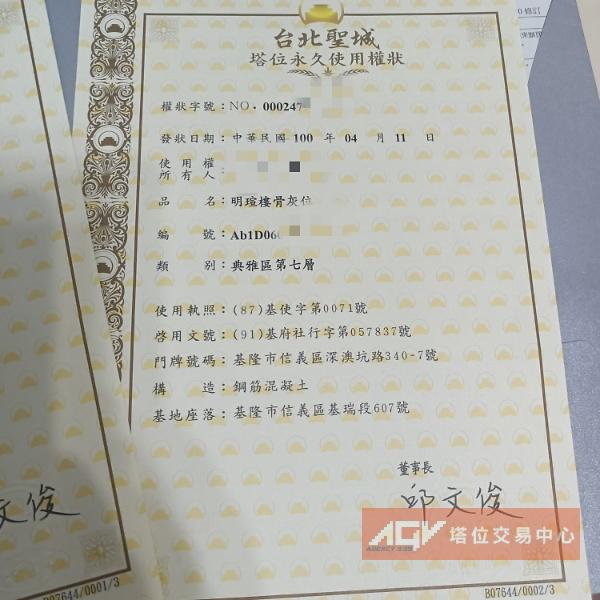 台北聖城
塔位永久使用權狀
權狀字號：NO. 000247
發狀日期：中華民國 100 年 04 月 11 日
使用權
所有人：
品名：明瑄樓骨灰位
編號：Ab1D06
類別：典雅區第七層
使用執照：(87)基使字第0071號
啓用文號：(91)基府社行字第057837號
門牌號碼：基隆市信義區深澳坑路340-7號
構造：鋼筋混凝土
基地座落：基隆市信義區基瑞段607號
董事長
邱文俊
文俊
AGV 塔位交易中心
B07644/0001/3
B07644/0002/3